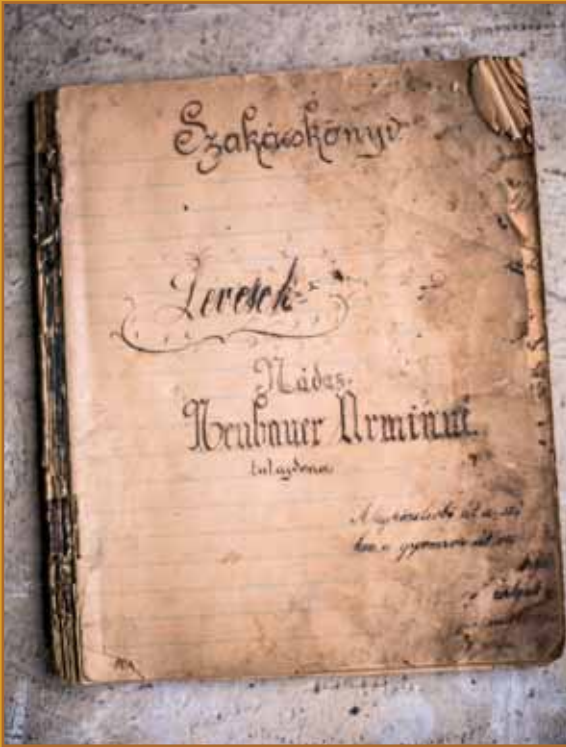 Szakácskönyv
Levesek
Nádas.
Neubauer Árminné
tulajdona
A legrövidebb út a szí
ben a gyomron át